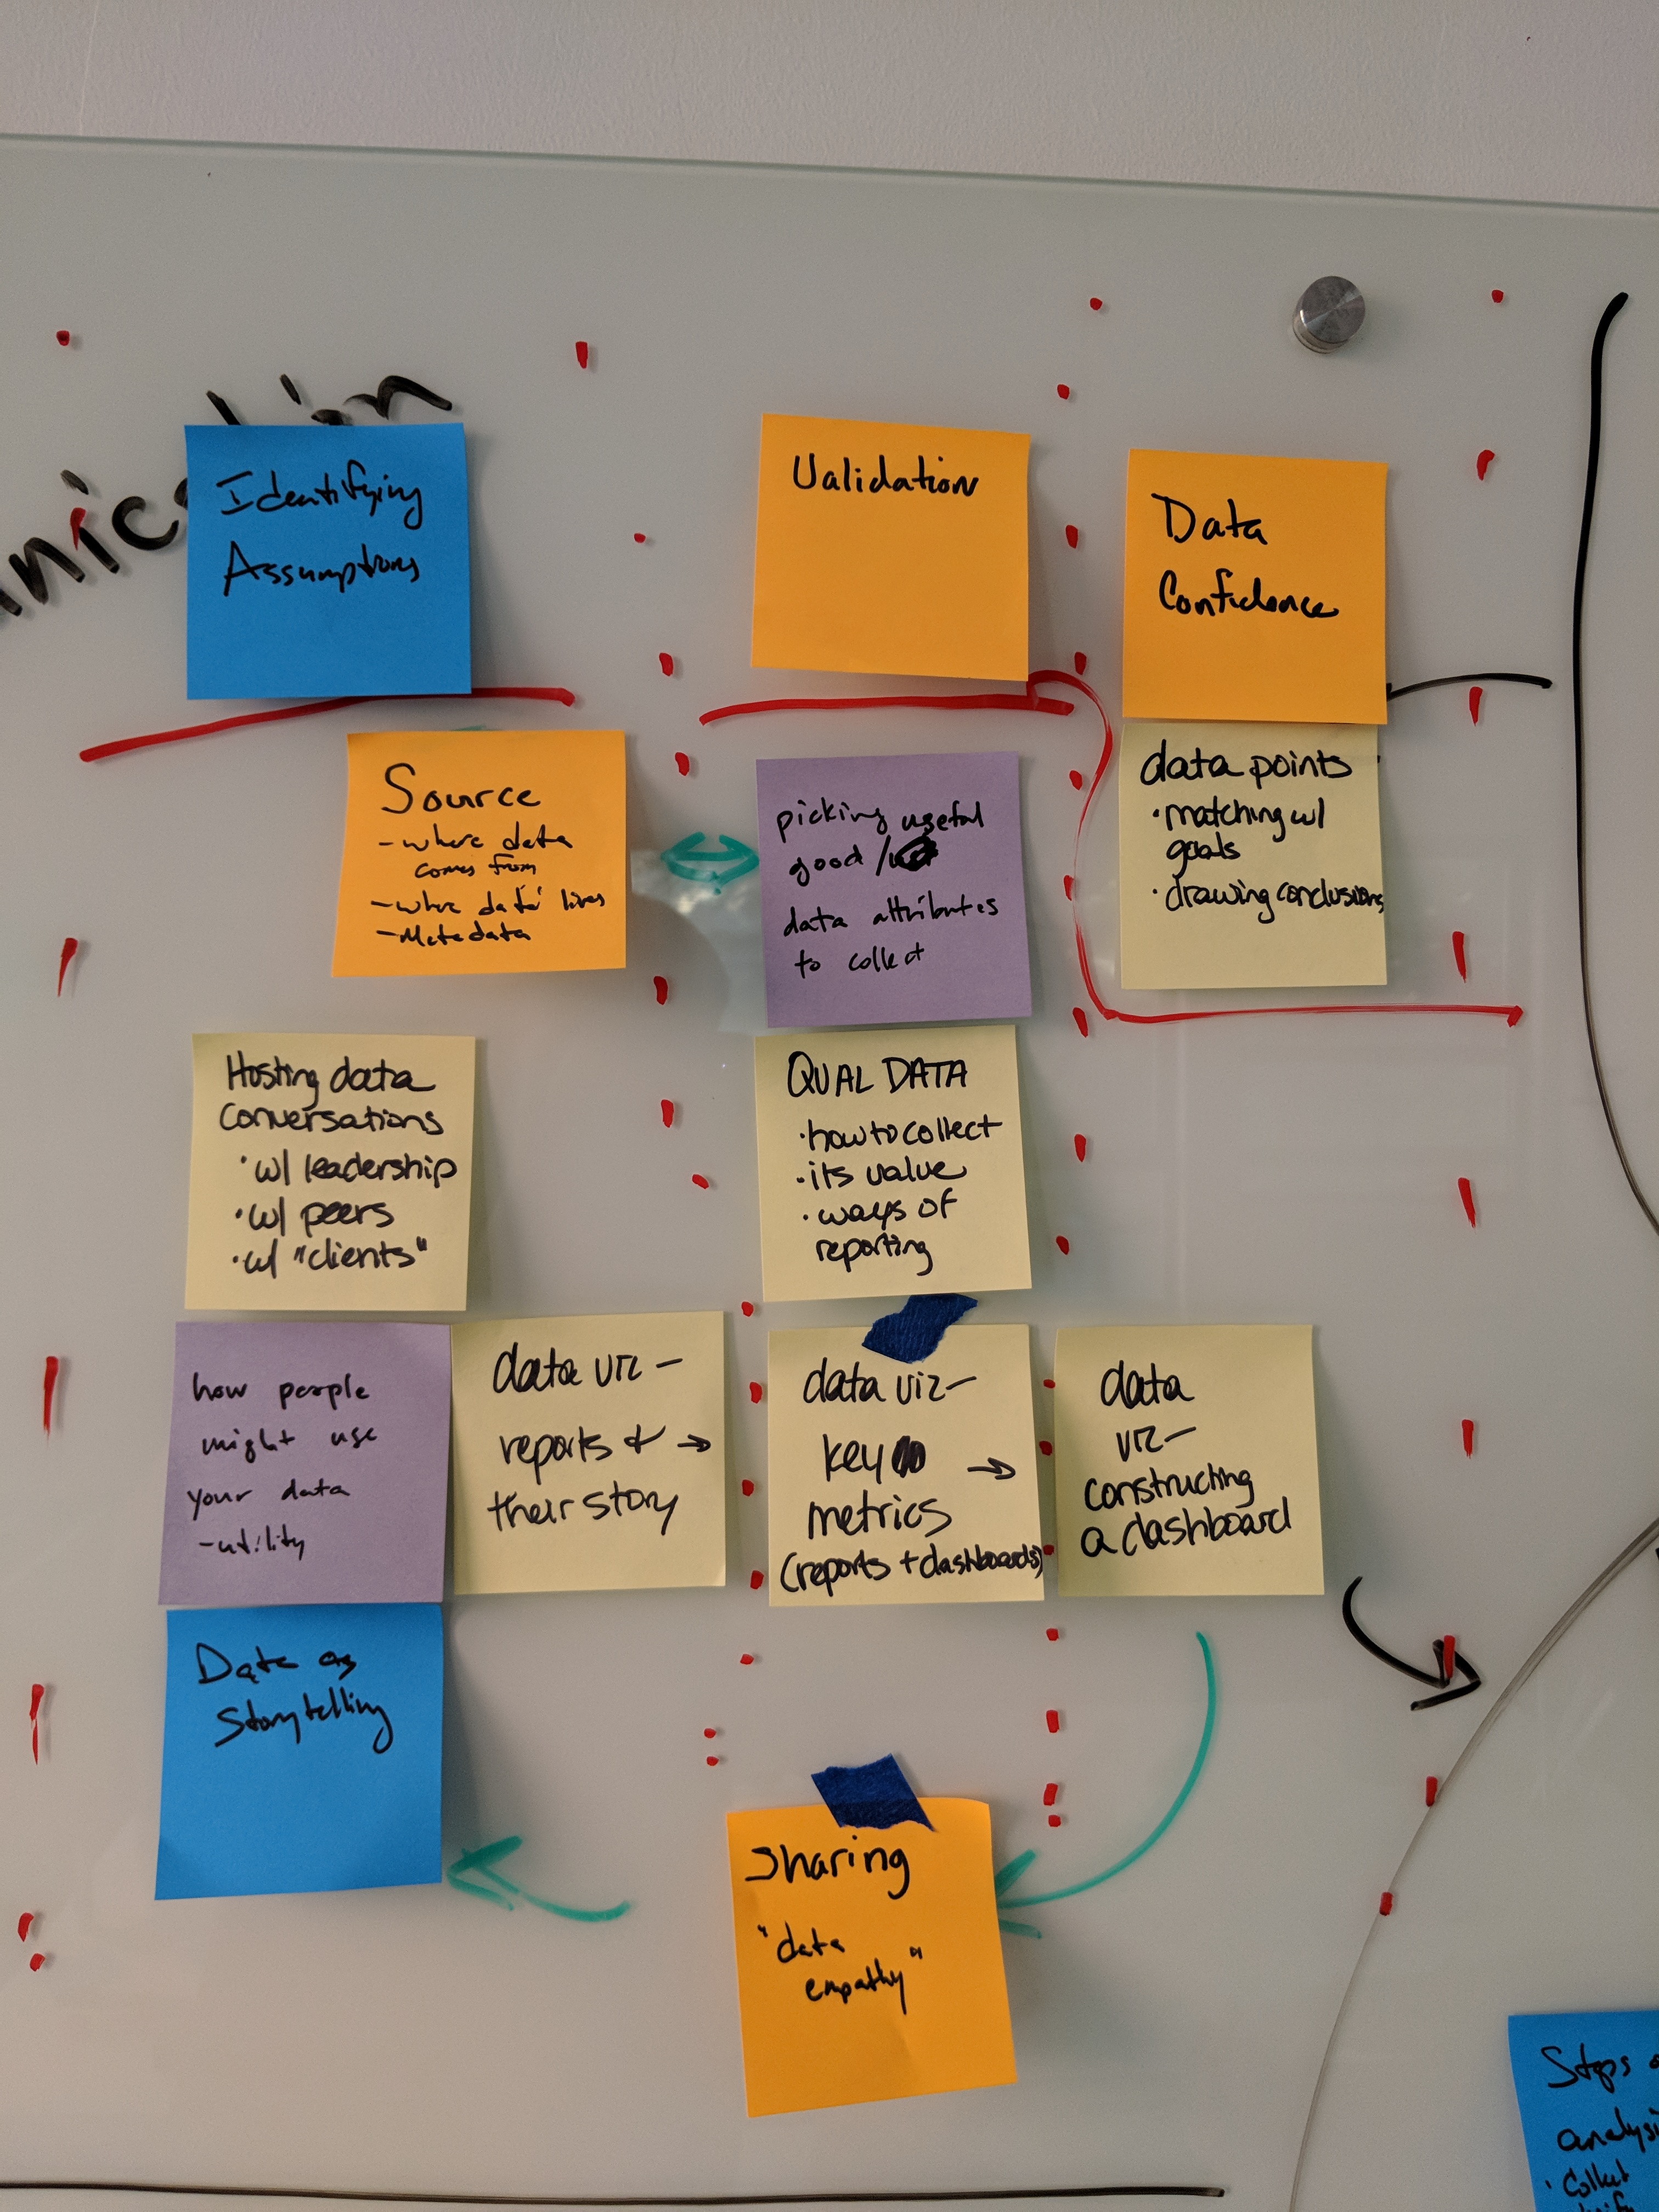 Identifying
Assumptions
Validation
Data
Confidence
Source
- where data
comes from
- where data lives
- Metadata
picking useful
good /
data attributes
to collect
data points
· matching w/
goals
· drawing conclusions
Hosting data
conversations
· w/ leadership
· w/ peers
· w/ "clients"
QUAL DATA
· how to collect
· its value
· ways of
reporting
how people
might use
your data
- utility
data viz -
reports & →
their story
data viz -
key →
metrics
(reports + dashboards)
data
viz -
constructing
a dashboard
Data as
Storytelling
Sharing
"data
empathy"
Steps
analysi
· Collect